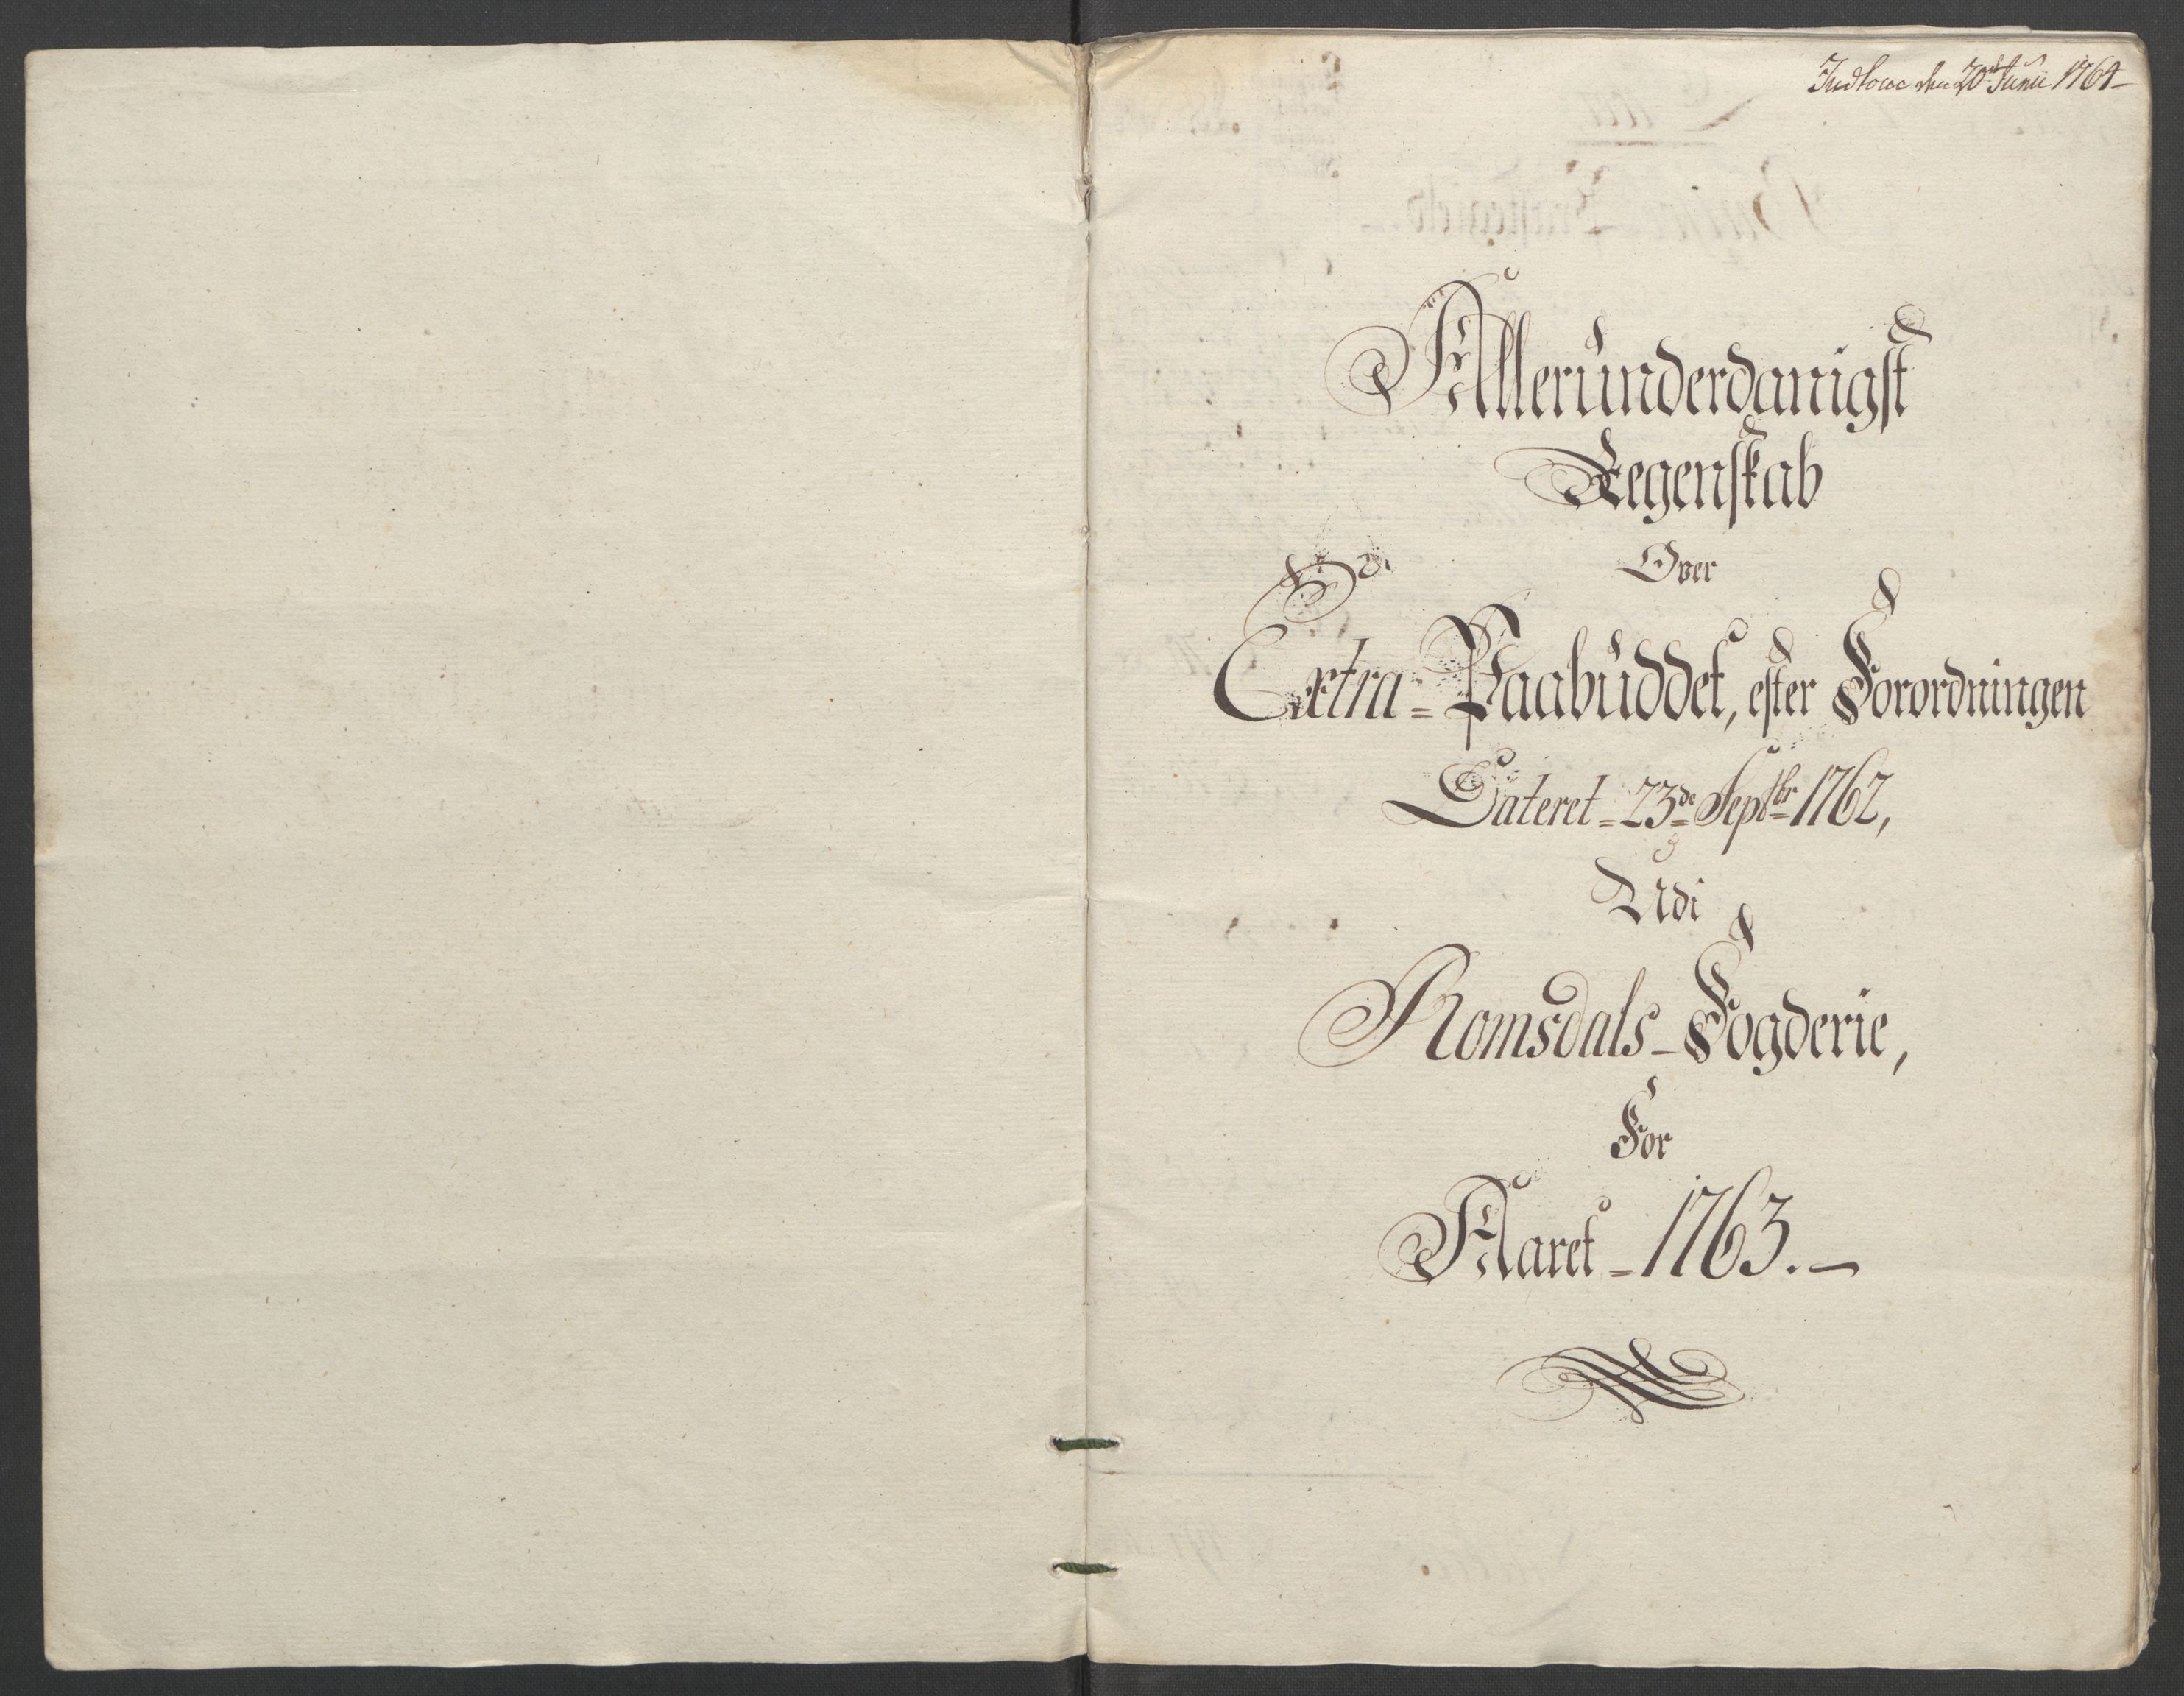 den 20de Junii 1764
Allerunderdanigst
Regenskab
Over
Extra-Paabuddet, efter Forordningen
Dateret 23de Septbr 1762,
Udi
Romsdals Fogderie,
For
Aaret 1763.